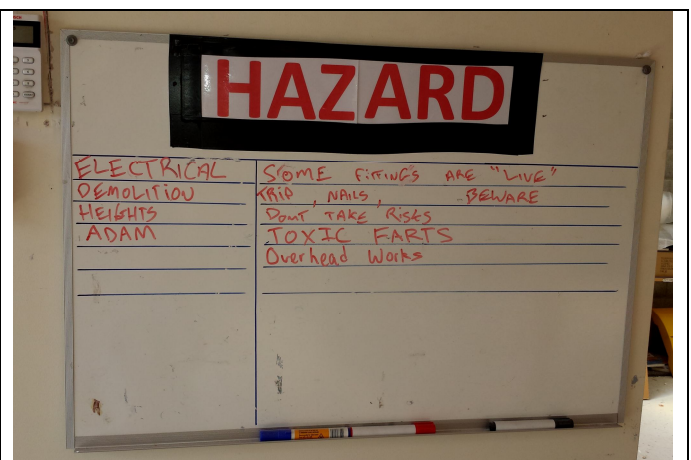 HAZARD
ELECTRICAL SOME FITTINGS ARE "LIVE"
DEMOLITION TRIP, NAILS, BEWARE
HEIGHTS DONT TAKE RISKS
ADAM TOXIC FARTS
Overhead Works